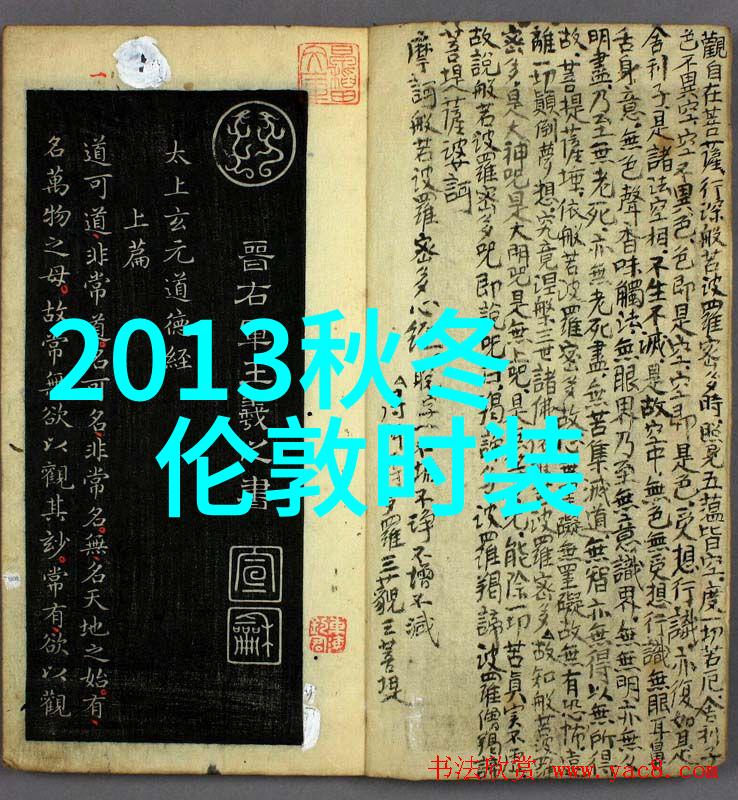 2013秋冬
伦敦时装
晉右軍王羲之書
太上玄元道德經
上篇
道可道非常道名可名非常名無名天地之始有
名萬物之母故常無欲以觀其妙常有欲以觀
宣龢
觀自在菩薩行深般若波羅密多時照見五蘊皆空度一切苦厄舍利子
色不異空空不異色色即是空空即是色受想行識亦復如是
舍利子是諸法空相不生不滅是故空中無色無受想行識無眼耳鼻
舌身意無色聲香味觸法無眼界乃至無意識界無無明亦無
明盡乃至無老死亦無老死盡無苦集滅道無智亦無得以無所得
故菩提薩埵依般若波羅密多故心無罣礙無罣礙故無有恐怖遠
離一切顛倒夢想究竟涅槃三世諸佛般若波羅密多故知般若波羅
密多是大神咒是大明咒是無上咒是咒能除一切苦真實不虛
故說般若波羅密多咒即說咒曰揭諦波羅揭諦波羅僧揭諦
菩提薩婆訶
摩訶般若波羅密多心經不垢不淨不增不減
多羅三藐三菩提
书法欣赏 www.yac8.com